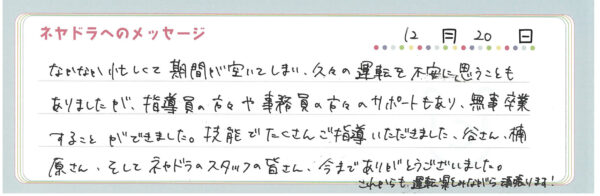 ネヤドラへのメッセージ
12月20日
なかなか忙しくて期間が空いてしまい、久々の運転を不安に思うことも
ありましたが、指導員の方々や事務員の方々のサポートもあり、無事卒業
することができました。技能でたくさんご指導いただきました、谷さん、楠
原さん、そしてネヤドラのスタッフの皆さん、今までありがとうございました。
これからも運転楽しみながら頑張ります！